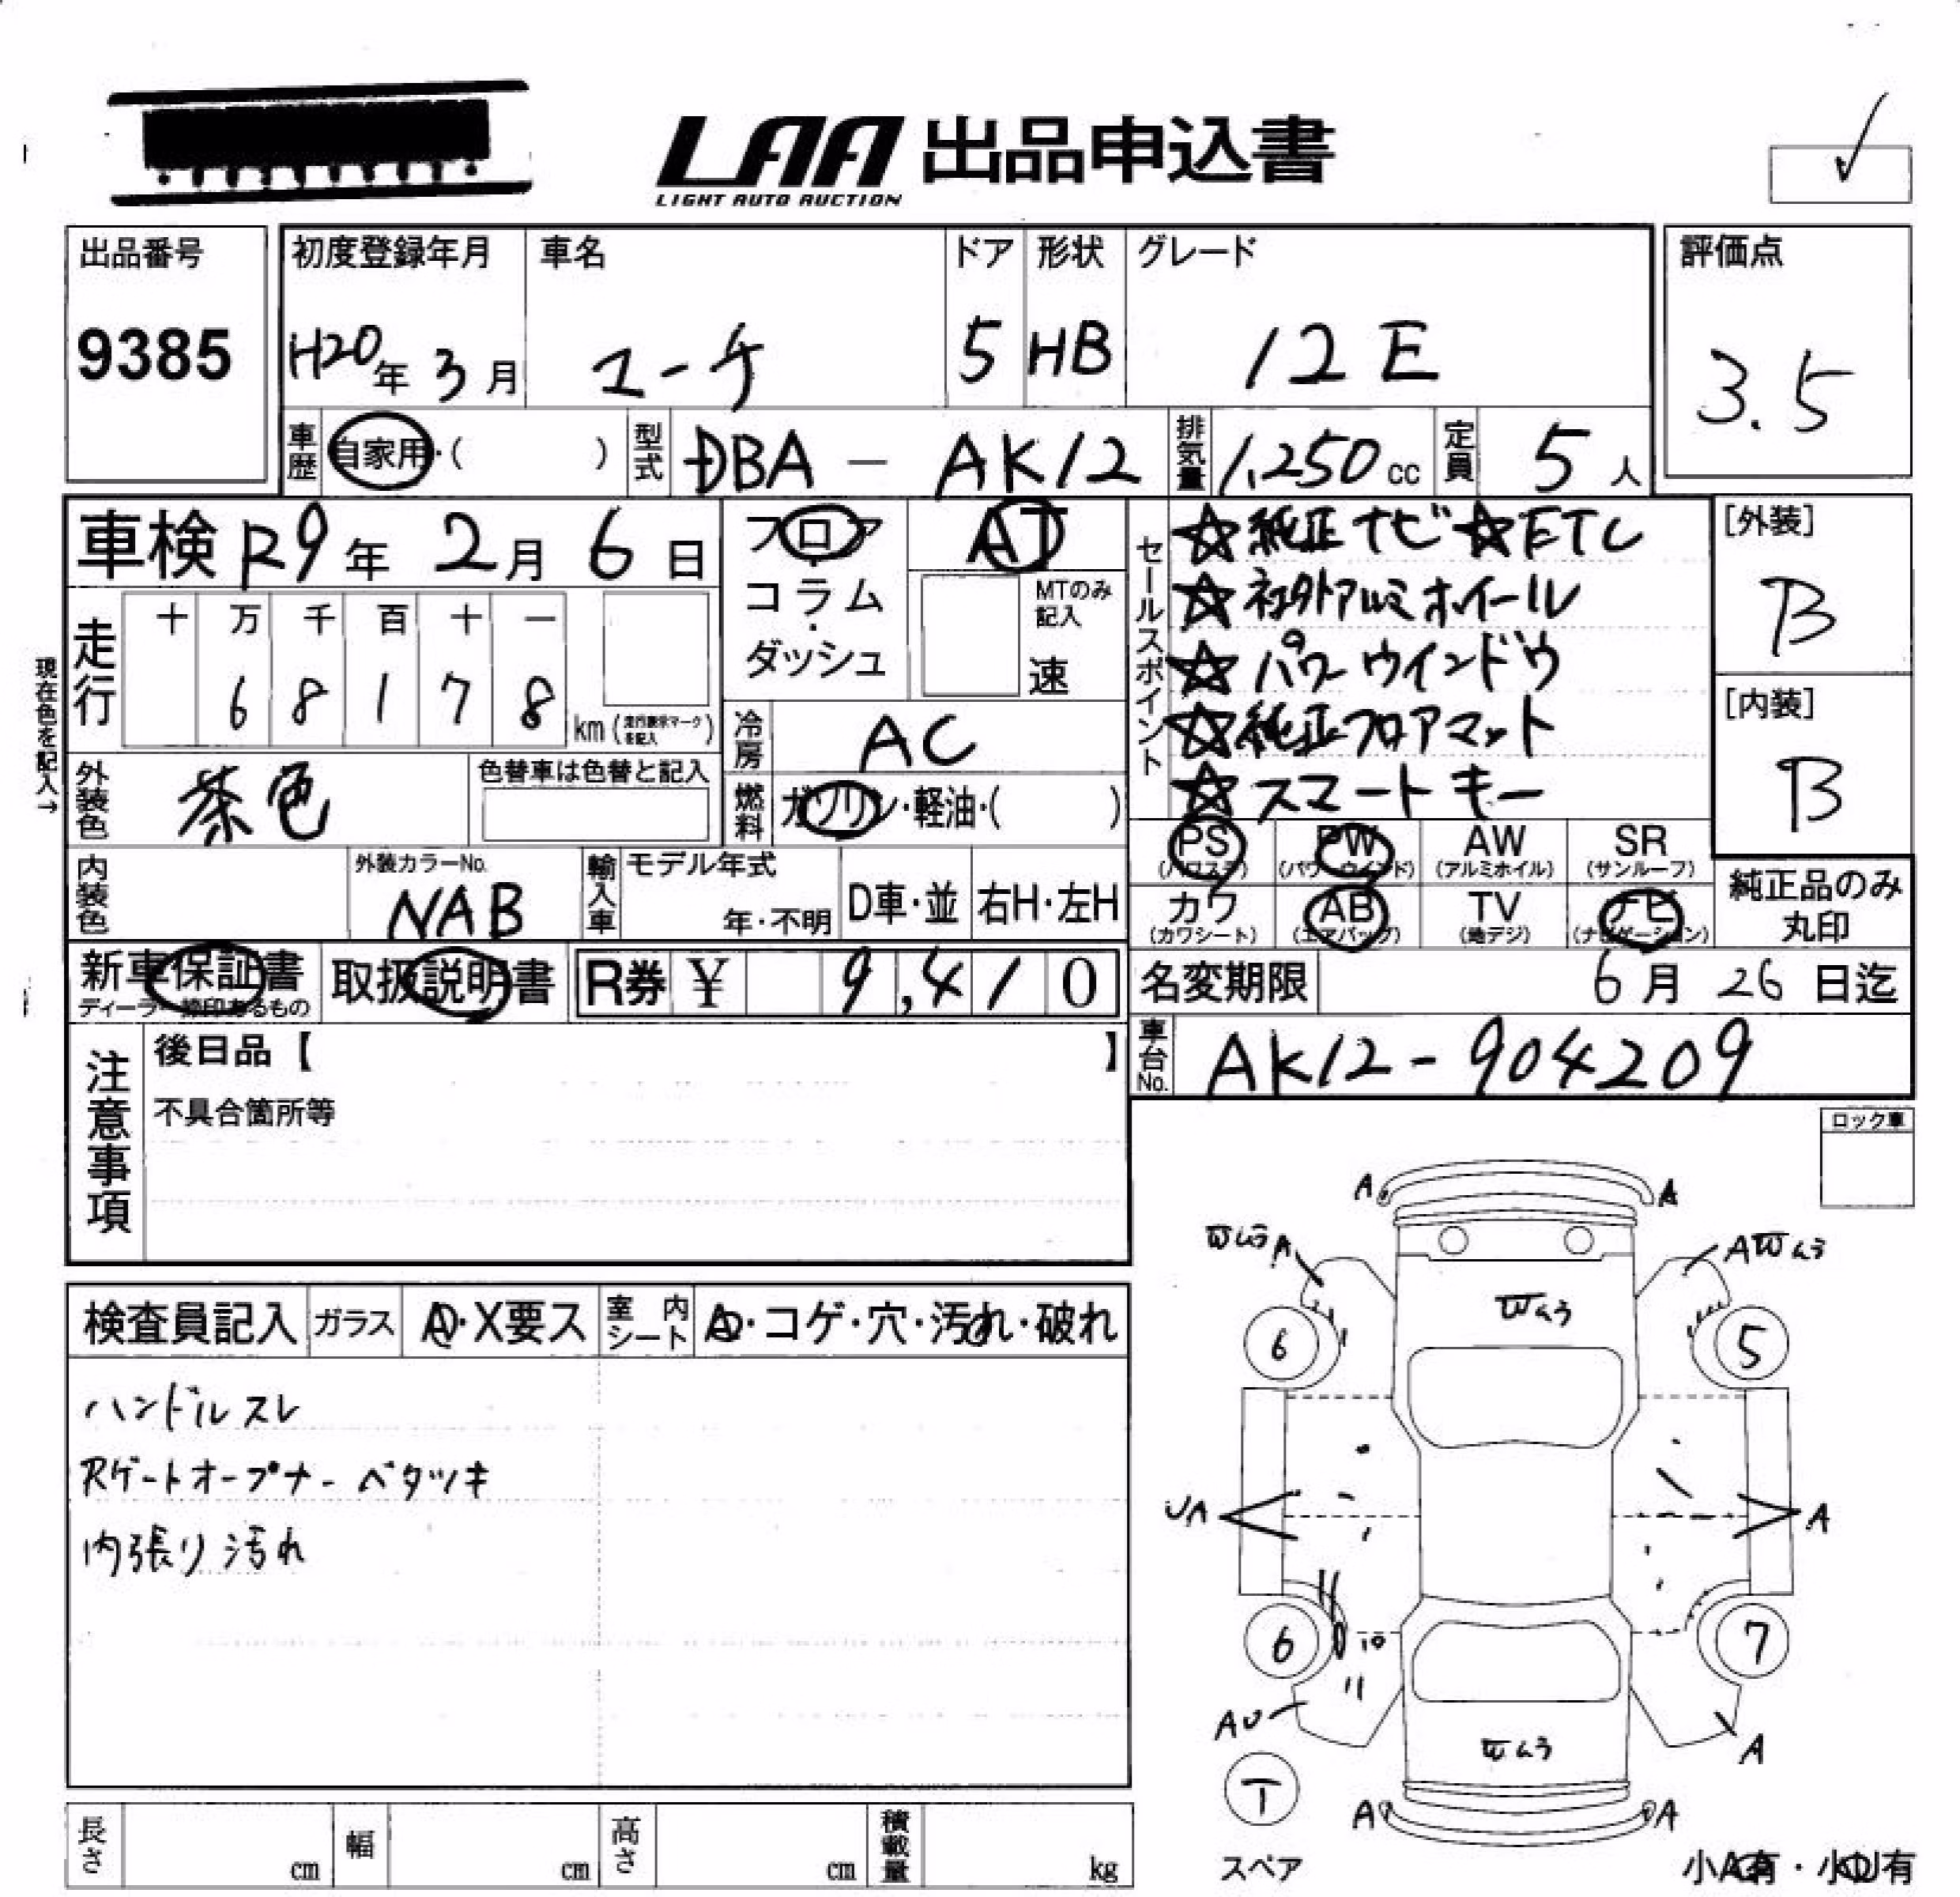 LAA 出品申込書
LIGHT AUTO AUCTION
出品番号 初度登録年月 車名 ドア 形状 グレード 評価点
9385 H20年 3月 マーチ 5 HB 12E 3.5
車歴 自家用・( ) 型式 DBA - AK12 排気量 1,250cc 定員 5人
車検 R9年 2月 6日 フロア AT
コラム・ダッシュ MTのみ記入 速
セールスポイント
☆純正ナビ ☆ETC
☆社外アルミホイール
☆パワーウインドウ
☆純正フロアマット
☆スマートキー
[外装]
B
[内装]
B
現在色を記入→
走行 十 万 千 百 十 一
6 8 1 7 8 km (走行表示マークを記入)
冷房 AC
外装色 茶色 色替車は色替と記入
燃料 ガソリン・軽油・( )
PS (パワステ) PW (パワーウインド) AW (アルミホイル) SR (サンルーフ)
カワ (カワシート) AB (エアバッグ) TV (地デジ) ナビ (ナビゲーション)
純正品のみ丸印
内装色 外装カラーNo. NAB 輸入車 モデル年式 年・不明 D車・並 右H・左H
新車保証書 ディーラー捺印あるもの 取扱説明書 R券 ¥ 9,410
名変期限 6月 26日迄
車台No. AK12-904209
注意事項
後日品【 】
不具合箇所等
ロック車
検査員記入 ガラス A・X要ス 室内シート A・コゲ・穴・汚れ・破れ
ハンドルスレ
Rゲートオープナーベタツキ
内張り汚れ
A A
Wムラ A A Wムラ
Wムラ
6 5
UA A
6 7
AU A
Wムラ
T
A A
スペア
小A有・小U有
長さ cm 幅 cm 高さ cm 積載量 kg